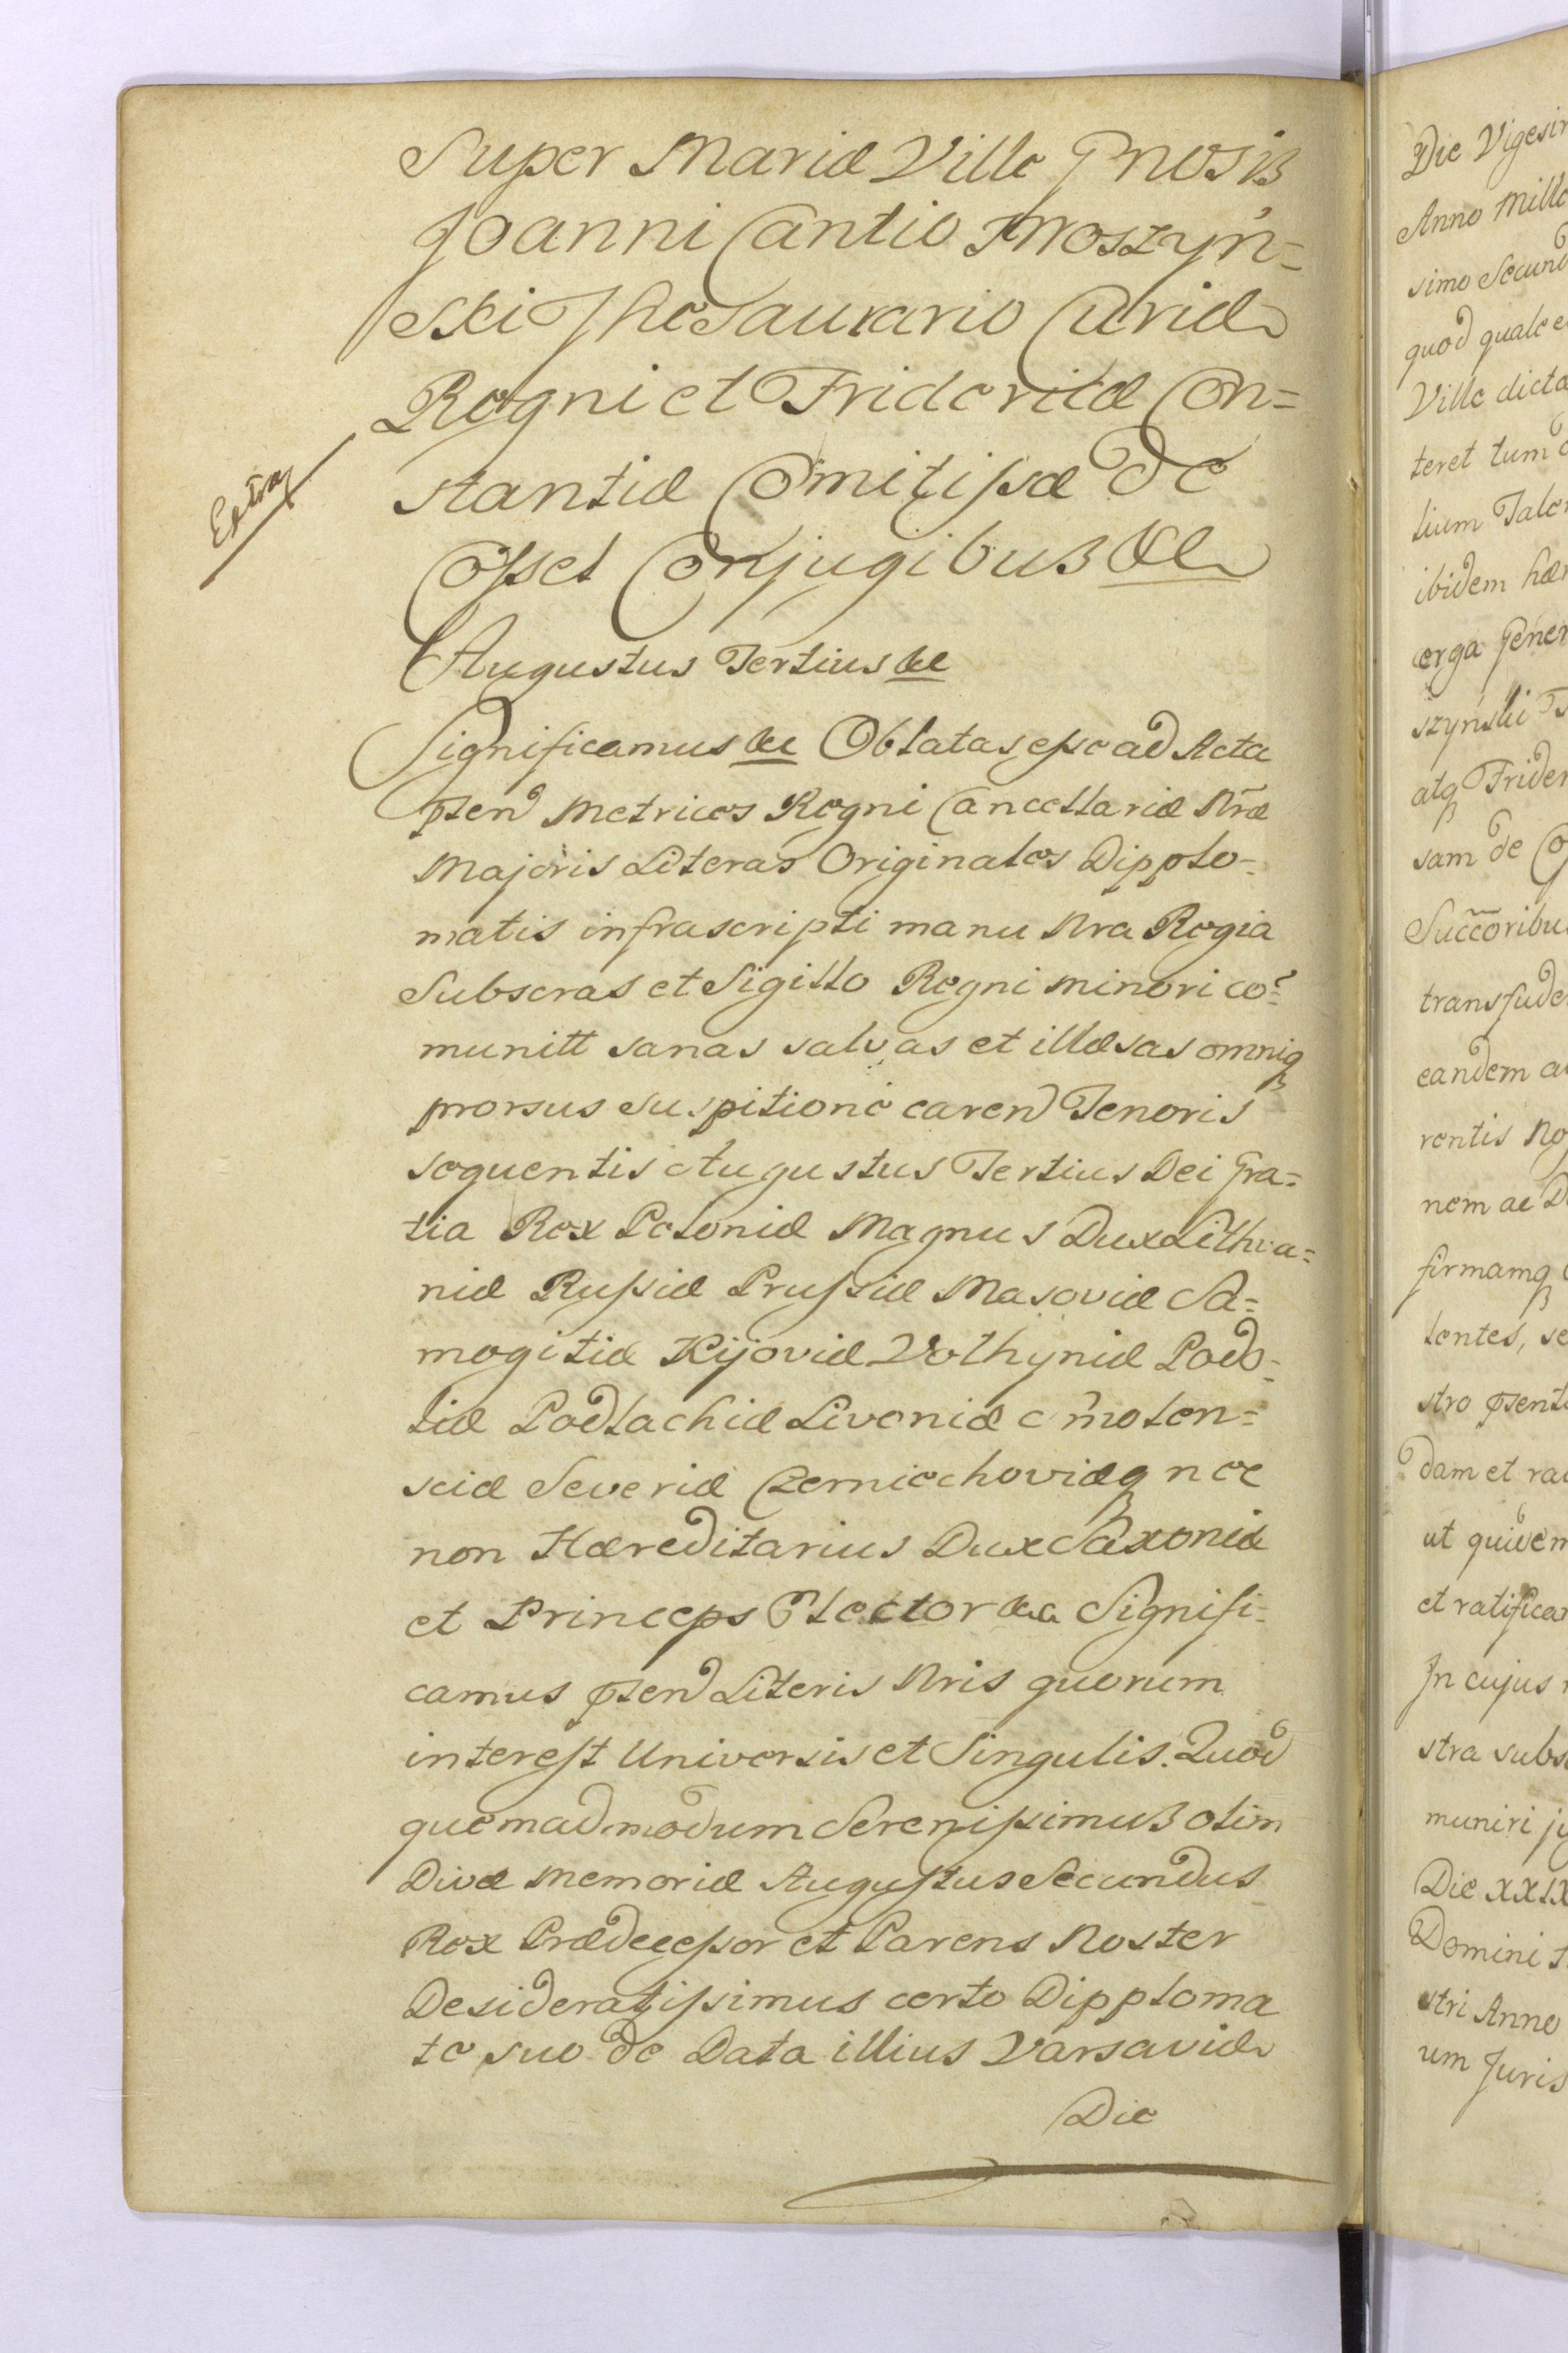 Super Mariæ Ville Gnosis
Joanni Cantio Moszyń=
ski Thesaurario Curiæ
Regni et Fridericæ Con=
stantiæ Comitissæ de
Cosel Conjugibus &c
Extra
Augustus Tertius &c
Significamus &c Oblatas esse ad Acta
psen Metrices Regni Cancellariæ Nræ
Majoris Literas Originales Dipplo=
matis infrascripti manu Nra Regia
Subscras et Sigillo Regni minori co=
munitt sanas salvas et illæsas omniq
prorsus suspitione caren Tenoris
sequentis Augustus Tertius Dei Gra=
tia Rex Poloniæ Magnus Dux Lithva=
niæ Russiæ Prussiæ Masoviæ Sa=
mogitiæ Kijoviæ Volhyniæ Podo=
liæ Podlachiæ Livoniæ Smolen=
sciæ Severiæ Czerniechoviæq nec
non Hæreditarius Dux Saxoniæ
et Princeps Elector &c Signifi=
camus psen Literis Nris quorum
interest Universis et Singulis. Quod
quemadmodum Serenissimus olim
Divæ Memoriæ Augustus Secundus
Rex Prædecessor et Parens Noster
Desideratissimus certo Dipploma
te suo de Data illius Varsaviæ
Die
Die Vigesi
Anno Mille
simo Secund
quod quale
Ville dicta
teret tum
lium Tale
ibidem hær
erga Gener
szyński
atq Frider
sam de Co
Succoribu
transfude
eandem a
rentis No
nem ac D
firmamq
lentes, se
stro psent
dam et ra
ut quidem
et ratifica
In cujus
stra subs
muniri ju
Die XXIX
Domini
stri Anno
um Juris